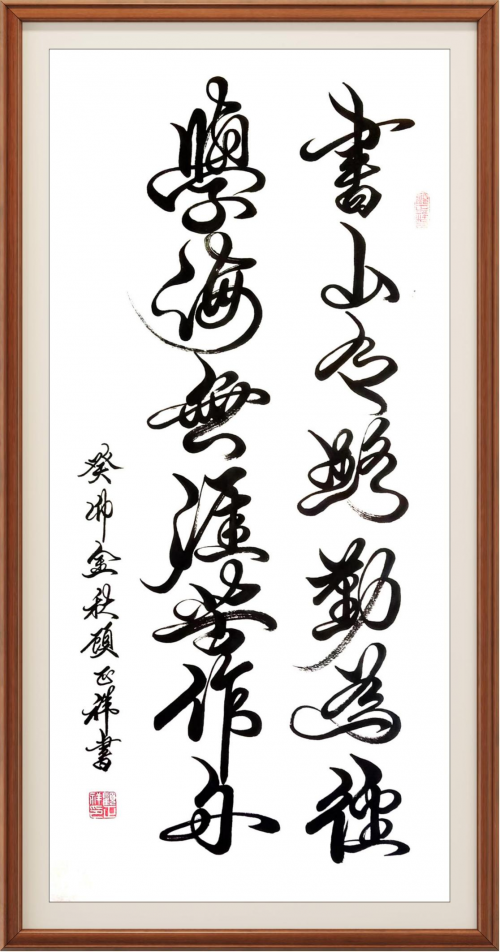 書山有路勤為徑
學海無涯苦作舟
癸卯金秋顧正祥書